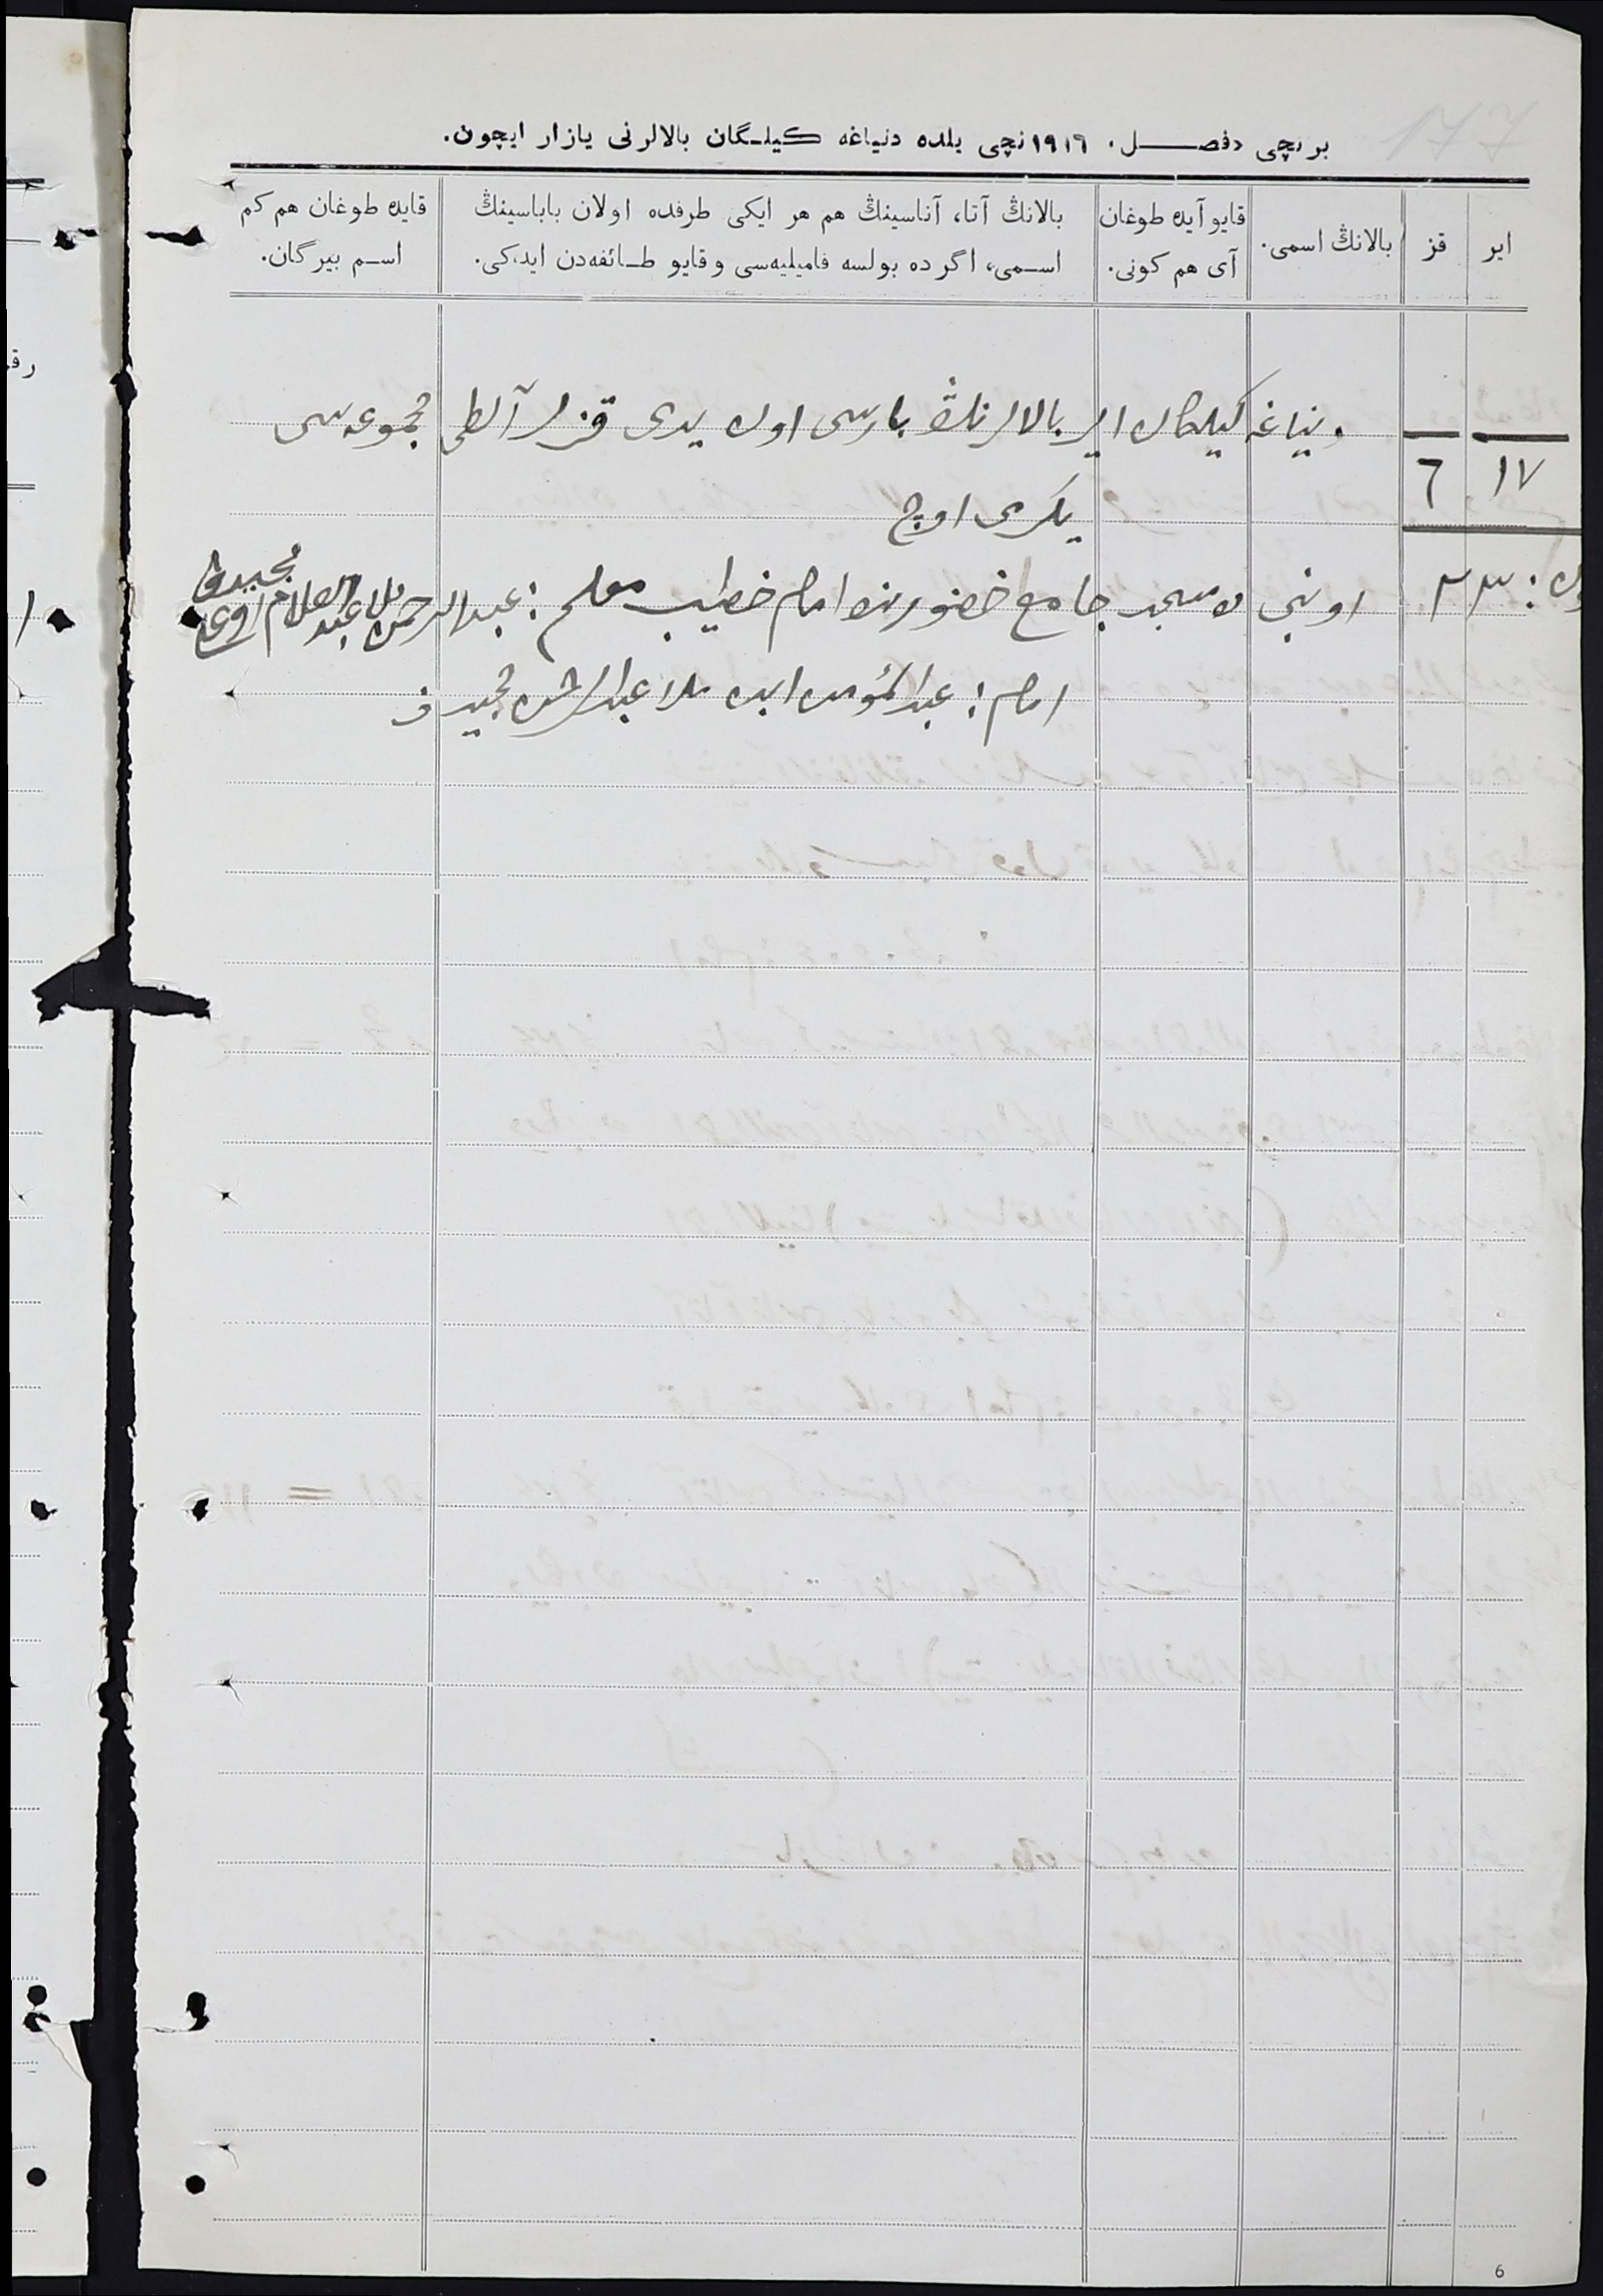 177
برنچی فصل. ۱۹۱۶ نچی یلده دنیاغه کیلگان بالالرنی یازار ایچون.
ایر
قز
بالانڭ اسمی.
قایو آیده طوغان
آی هم کونی.
بالانڭ آتا، آناسینڭ هم هر ایکی طرفده اولان باباسینڭ
اسمی، اگر ده بولسه فامیلیه‌سی و قایو طائفه‌دن ایدکی.
قایده طوغان هم کم
اسم بیرگان.
دنیاغه کیلکان ایر بالالرنڭ بارسی اون یدی قزلر آلطی مجموعه سی
۱۷
۶
یکرمی اوچ
۲۳ اونچی مسجد جامع حضورنده امام خطیب معلم: عبدالرحمن ملا عبدالعلام اوغلی
مجیدف
امام: عبدالمؤمن ابن ملا عبدالرحمن مجیدف
6